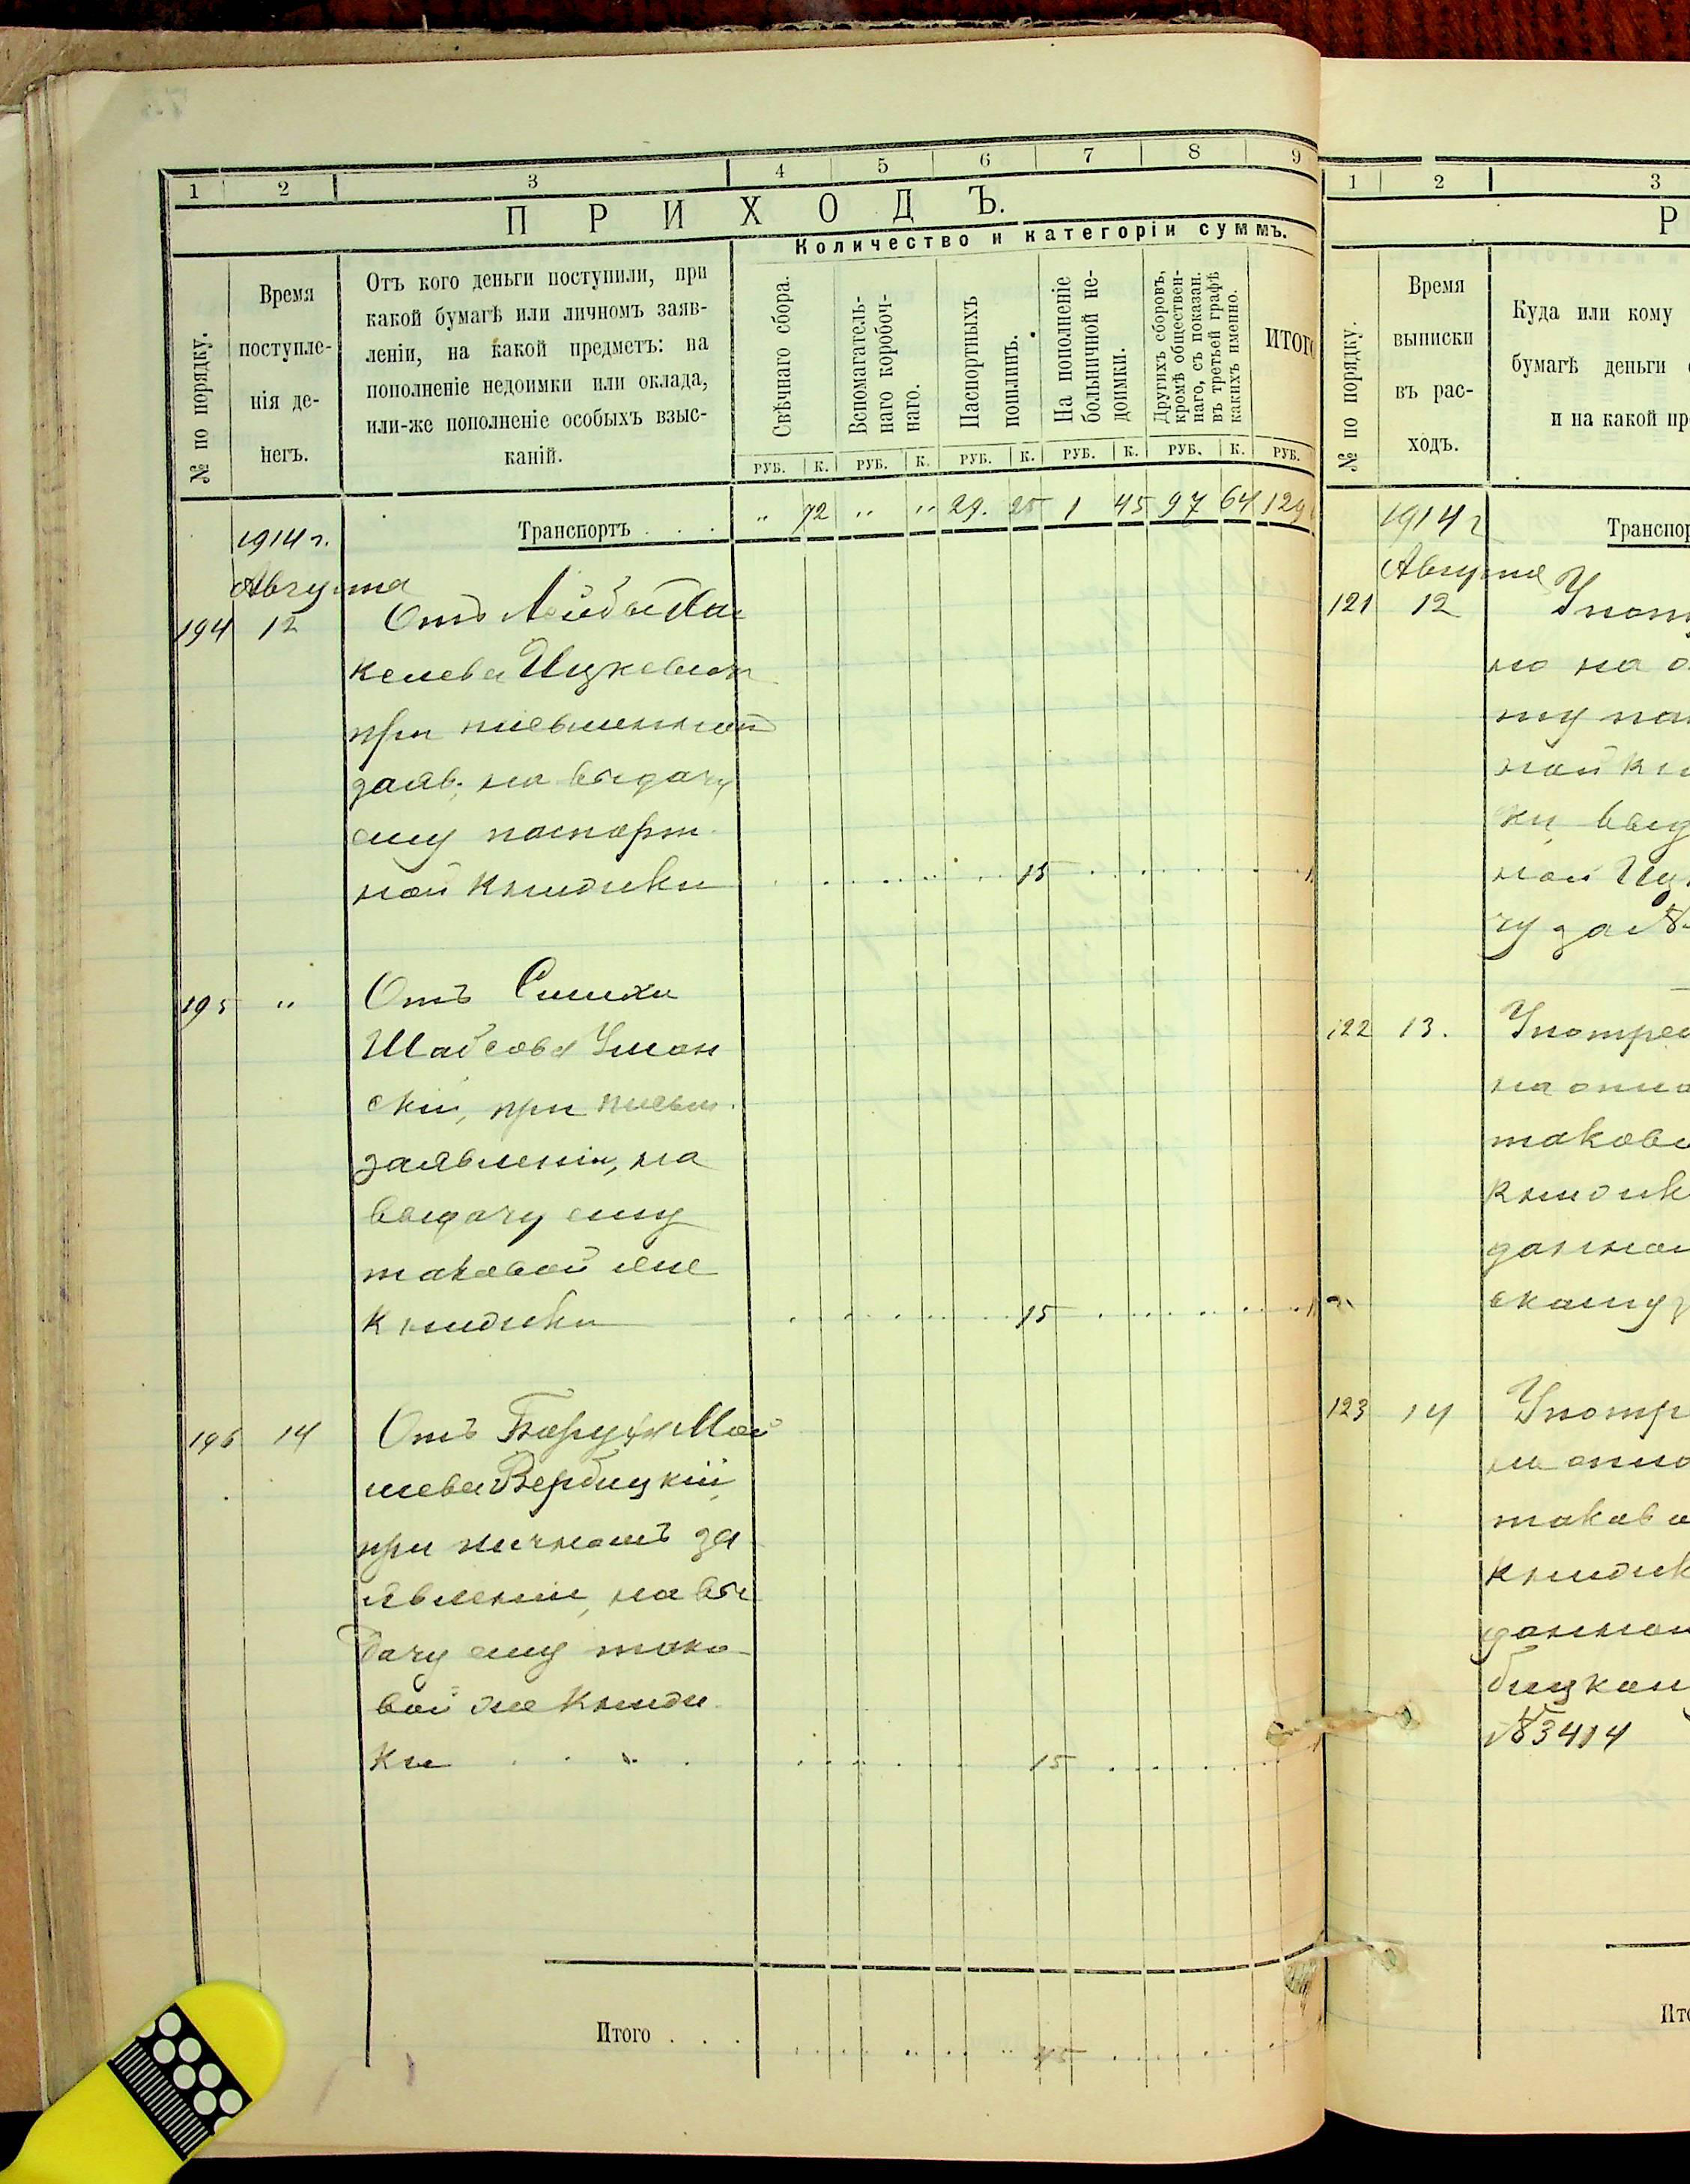 1 2 3 4 5 6 7 8 9
ПРИХОДЪ.
№ по порядку.
Время
поступле-
нія де-
негъ.
Отъ кого деньги поступили, при
какой бумагѣ или личномъ заяв-
леніи, на какой предметъ: на
пополненіе недоимки или оклада,
или-же пополненіе особыхъ взыс-
каній.
Количество и категоріи суммъ.
Свѣчнаго сбора.
Вспомагатель-
наго коробоч-
наго.
Паспортныхъ
пошлинъ.
На пополненіе
больничной не-
доимки.
Другихъ сборовъ,
кромѣ обществен-
наго, съ показан.
въ третьей графѣ
какихъ именно.
ИТОГО
РУБ. К. РУБ. К. РУБ. К. РУБ. К. РУБ. К. РУБ.
1914 г. Транспортъ . . . " 72 " " 29. 25 1 45 97 64 129
Августа
194 12 Отъ Лейбы
Ицковича
при письменном
заяв. на выдачу
ему паспорт
ной книжки 15
195 " Отъ Симхи
Уман
скій, при письм.
заявленіи, на
выдачу ему
таковой же
книжки 15
196 14 Отъ Баруха Мой
шева Вербицкій,
при личномъ за
явленіи, на вы
дачу ему тако-
вой же книж
ки 15
Итого . . . 45
1 2 3
Р
№ по порядку.
Время
выписки
въ рас-
ходъ.
Куда или кому
бумагѣ деньги
и на какой пр
1914 г Транспор
Августа
121 12
но на о
ной кн
ки выд
ной Иц
чу за №
122 13. Употреб
на опла
таково
книжк
данной
скому
123 14 Употр
на опла
таково
книжк
данной
бицком
№ 3414
Ито